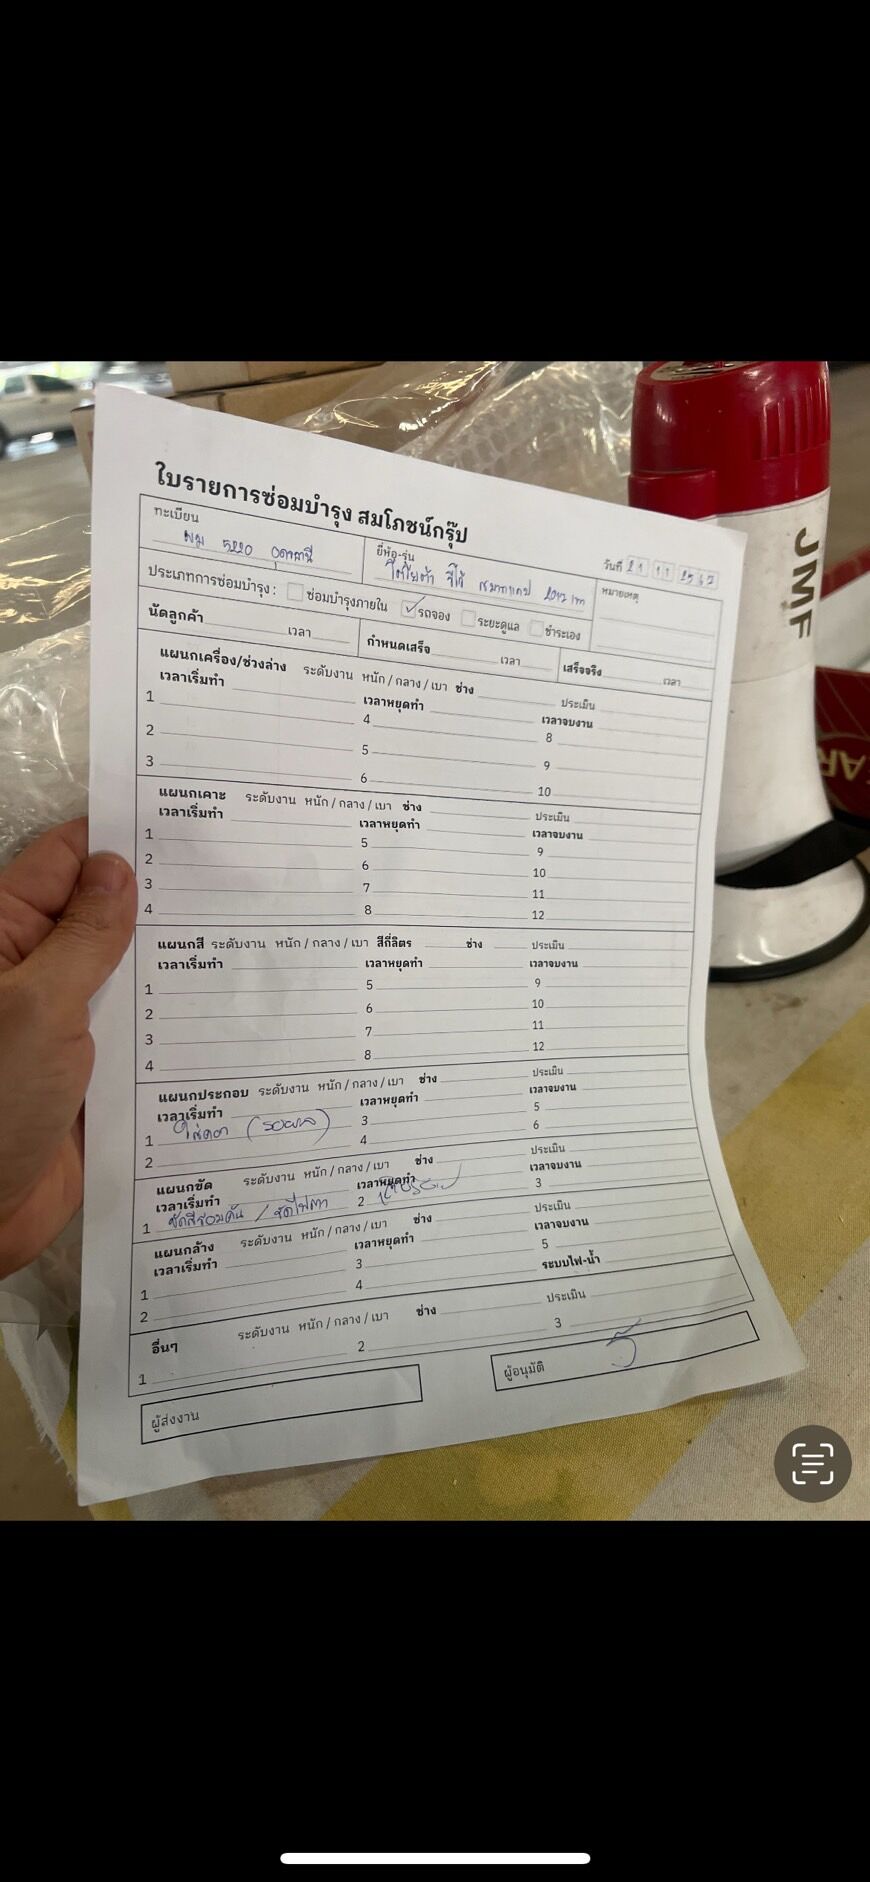 ใบรายการซ่อมบำรุง สมโภชน์กรุ๊ป
วันที่ 21 11 2567
ทะเบียน
ผม 5220 อุดรธานี
ยี่ห้อ-รุ่น
โตโยต้า รีโว้ สมาทแคป
หมายเหตุ
ประเภทการซ่อมบำรุง : ซ่อมบำรุงภายใน ✓ รถจอง ระยะดูแล ชำระเอง
นัดลูกค้า เวลา กำหนดเสร็จ เวลา เสร็จจริง เวลา
แผนกเครื่อง/ช่วงล่าง ระดับงาน หนัก / กลาง / เบา ช่าง ประเมิน
เวลาเริ่มทำ เวลาหยุดทำ เวลาจบงาน
1 4 8
2 5 9
3 6 10
แผนกเคาะ ระดับงาน หนัก / กลาง / เบา ช่าง ประเมิน
เวลาเริ่มทำ เวลาหยุดทำ เวลาจบงาน
1 5 9
2 6 10
3 7 11
4 8 12
แผนกสี ระดับงาน หนัก / กลาง / เบา สีกี่ลิตร ช่าง ประเมิน
เวลาเริ่มทำ เวลาหยุดทำ เวลาจบงาน
1 5 9
2 6 10
3 7 11
4 8 12
แผนกประกอบ ระดับงาน หนัก / กลาง / เบา ช่าง ประเมิน
เวลาเริ่มทำ เวลาหยุดทำ เวลาจบงาน
1 3 5
2 4 6
แผนกขัด ระดับงาน หนัก / กลาง / เบา ช่าง ประเมิน
เวลาเริ่มทำ เวลาหยุดทำ เวลาจบงาน
1 ขัดสีรอบคัน / ขัดไฟตา 2 3
แผนกล้าง ระดับงาน หนัก / กลาง / เบา ช่าง ประเมิน
เวลาเริ่มทำ เวลาหยุดทำ เวลาจบงาน
1 3 5
2 4 ระบบไฟ-น้ำ
อื่นๆ ระดับงาน หนัก / กลาง / เบา ช่าง ประเมิน
1 2 3
ผู้ส่งงาน ผู้อนุมัติ
JMF